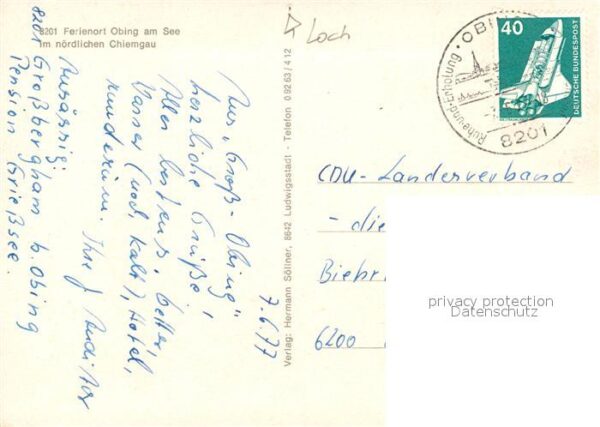 8201 Ferienort Obing am See
im nördlichen Chiemgau
Loch
OBING
Ruhe und Erholung
8201
40
DEUTSCHE BUNDESPOST
7.6.77
Aus „Groß-Obing"
herzliche Grüße!
Alles bestens. Wetter,
Wasser (noch kalt), Hotel,
rundherum. Ihre
Ansässig:
8201 Großbergham b. Obing
Pension Grießsee.
Verlag: Hermann Söllner, 8642 Ludwigsstadt - Telefon 0 92 63 / 4 12
CDU-Landesverband
- die
Biebr
6200
privacy protection
Datenschutz